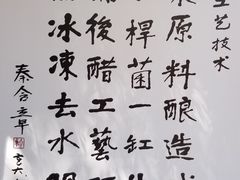 艺技术
原料釀造
桿菌一缸
後醋工藝
冰凍去水
秦含章